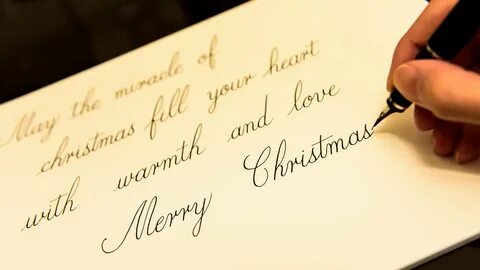 May the miracle of
christmas fill your heart
with warmth and love
Merry Christmas